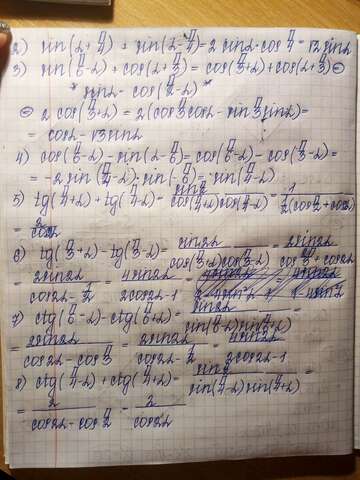 2) sin(α+π/4) + sin(α-π/4) = 2 sinα·cos π/4 = √2 sinα
3) sin(π/6-α) + cos(α+π/3) = cos(π/3+α) + cos(α+π/3) ⊖
* sinα - cos(π/2-α) *
⊖ 2 cos(π/3+α) = 2(cos π/3 cosα - sin π/3 sinα) =
= cosα - √3 sinα
4) cos(π/6-α) - sin(α-π/6) = cos(π/6-α) - cos(π/3-α) =
= -2 sin(π/4-α)·sin(-π/6) = sin(π/4-α)
5) tg(π/4+α) + tg(π/4-α) = sin π/2 / cos(π/4+α)cos(π/4-α) = 1 / 1/2(cos π/2 + cos2α)
2 / cos2α
6) tg(π/3+α) - tg(π/3-α) = sin2α / cos(π/3+α)cos(π/3-α) = 2sin2α / cos 2π/3 + cos2α
2sin2α / cos2α - 1/2 = 4sin2α / 2cos2α - 1
7) ctg(π/6-α) - ctg(π/6+α) = sin2α / sin(π/6-α)sin(π/6+α) =
= 2sin2α / cos2α - cos π/3 = 2sin2α / cos2α - 1/2 = 4sin2α / 2cos2α - 1
8) ctg(π/4-α) + ctg(π/4+α) = sin π/2 / sin(π/4-α)sin(π/4+α) =
= 2 / cos2α - cos π/2 = 2 / cos2α